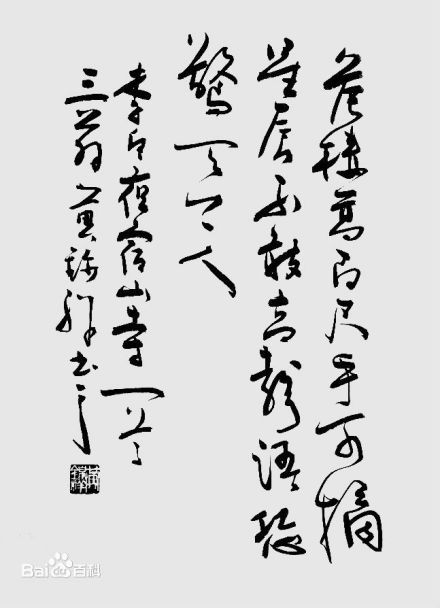 危樓高百尺手可摘
星辰不敢高聲語恐
驚天上人
李白夜宿山寺一首
黄 书
Bai百科